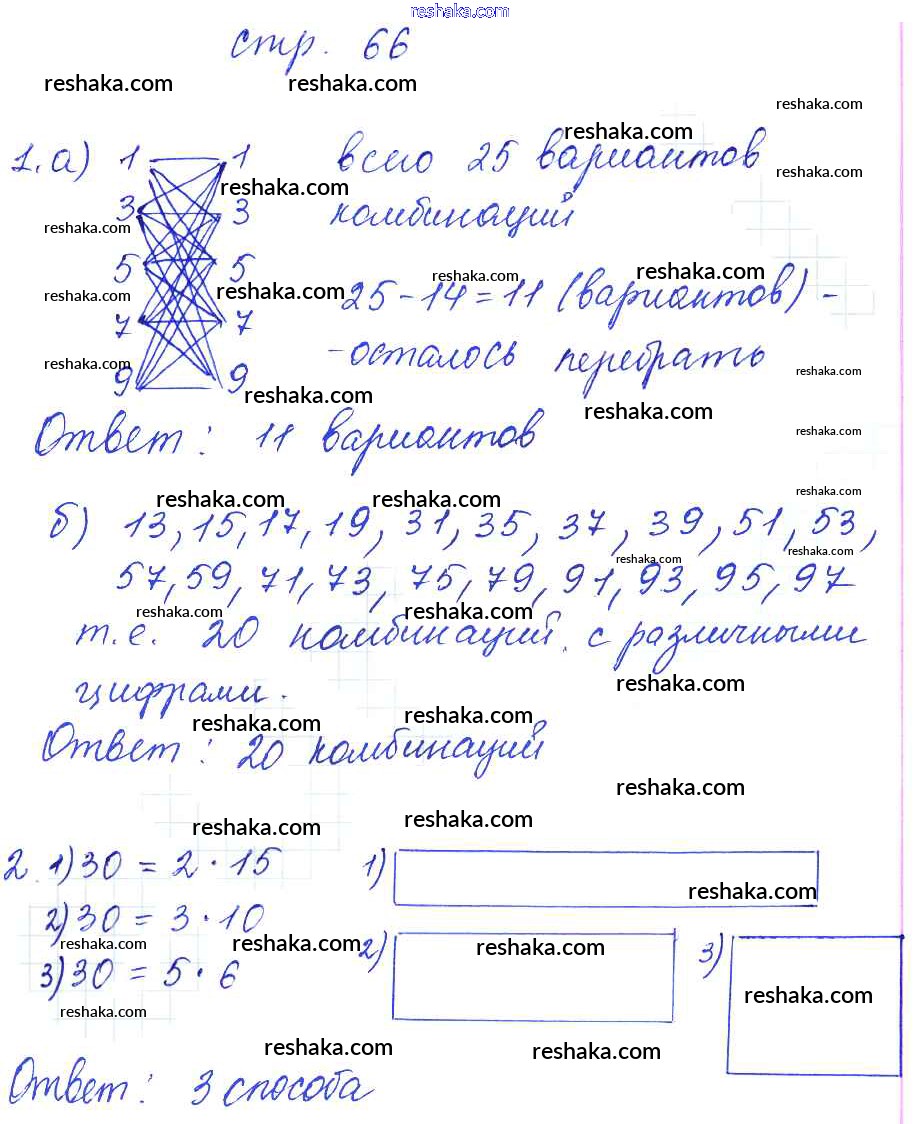 reshaka.com
стр. 66
reshaka.com reshaka.com reshaka.com
reshaka.com
1.а) 1 1 всего 25 вариантов reshaka.com
reshaka.com
3 3 комбинаций
reshaka.com
5 5 reshaka.com reshaka.com
reshaka.com reshaka.com 25-14=11 (вариантов) -
7 7
reshaka.com -осталось перебрать reshaka.com
9 9
reshaka.com reshaka.com
Ответ: 11 вариантов reshaka.com
reshaka.com reshaka.com reshaka.com
б) 13, 15, 17, 19, 31, 35, 37, 39, 51, 53,
reshaka.com reshaka.com
57, 59, 71, 73, 75, 79, 91, 93, 95, 97
reshaka.com reshaka.com
т.е. 20 комбинаций с различными
reshaka.com
цифрами.
reshaka.com reshaka.com
Ответ: 20 комбинаций
reshaka.com
reshaka.com reshaka.com
2. 1) 30 = 2 · 15 1)
reshaka.com
2) 30 = 3 · 10
reshaka.com reshaka.com 2) reshaka.com 3)
3) 30 = 5 · 6
reshaka.com
reshaka.com
reshaka.com reshaka.com
Ответ: 3 способа